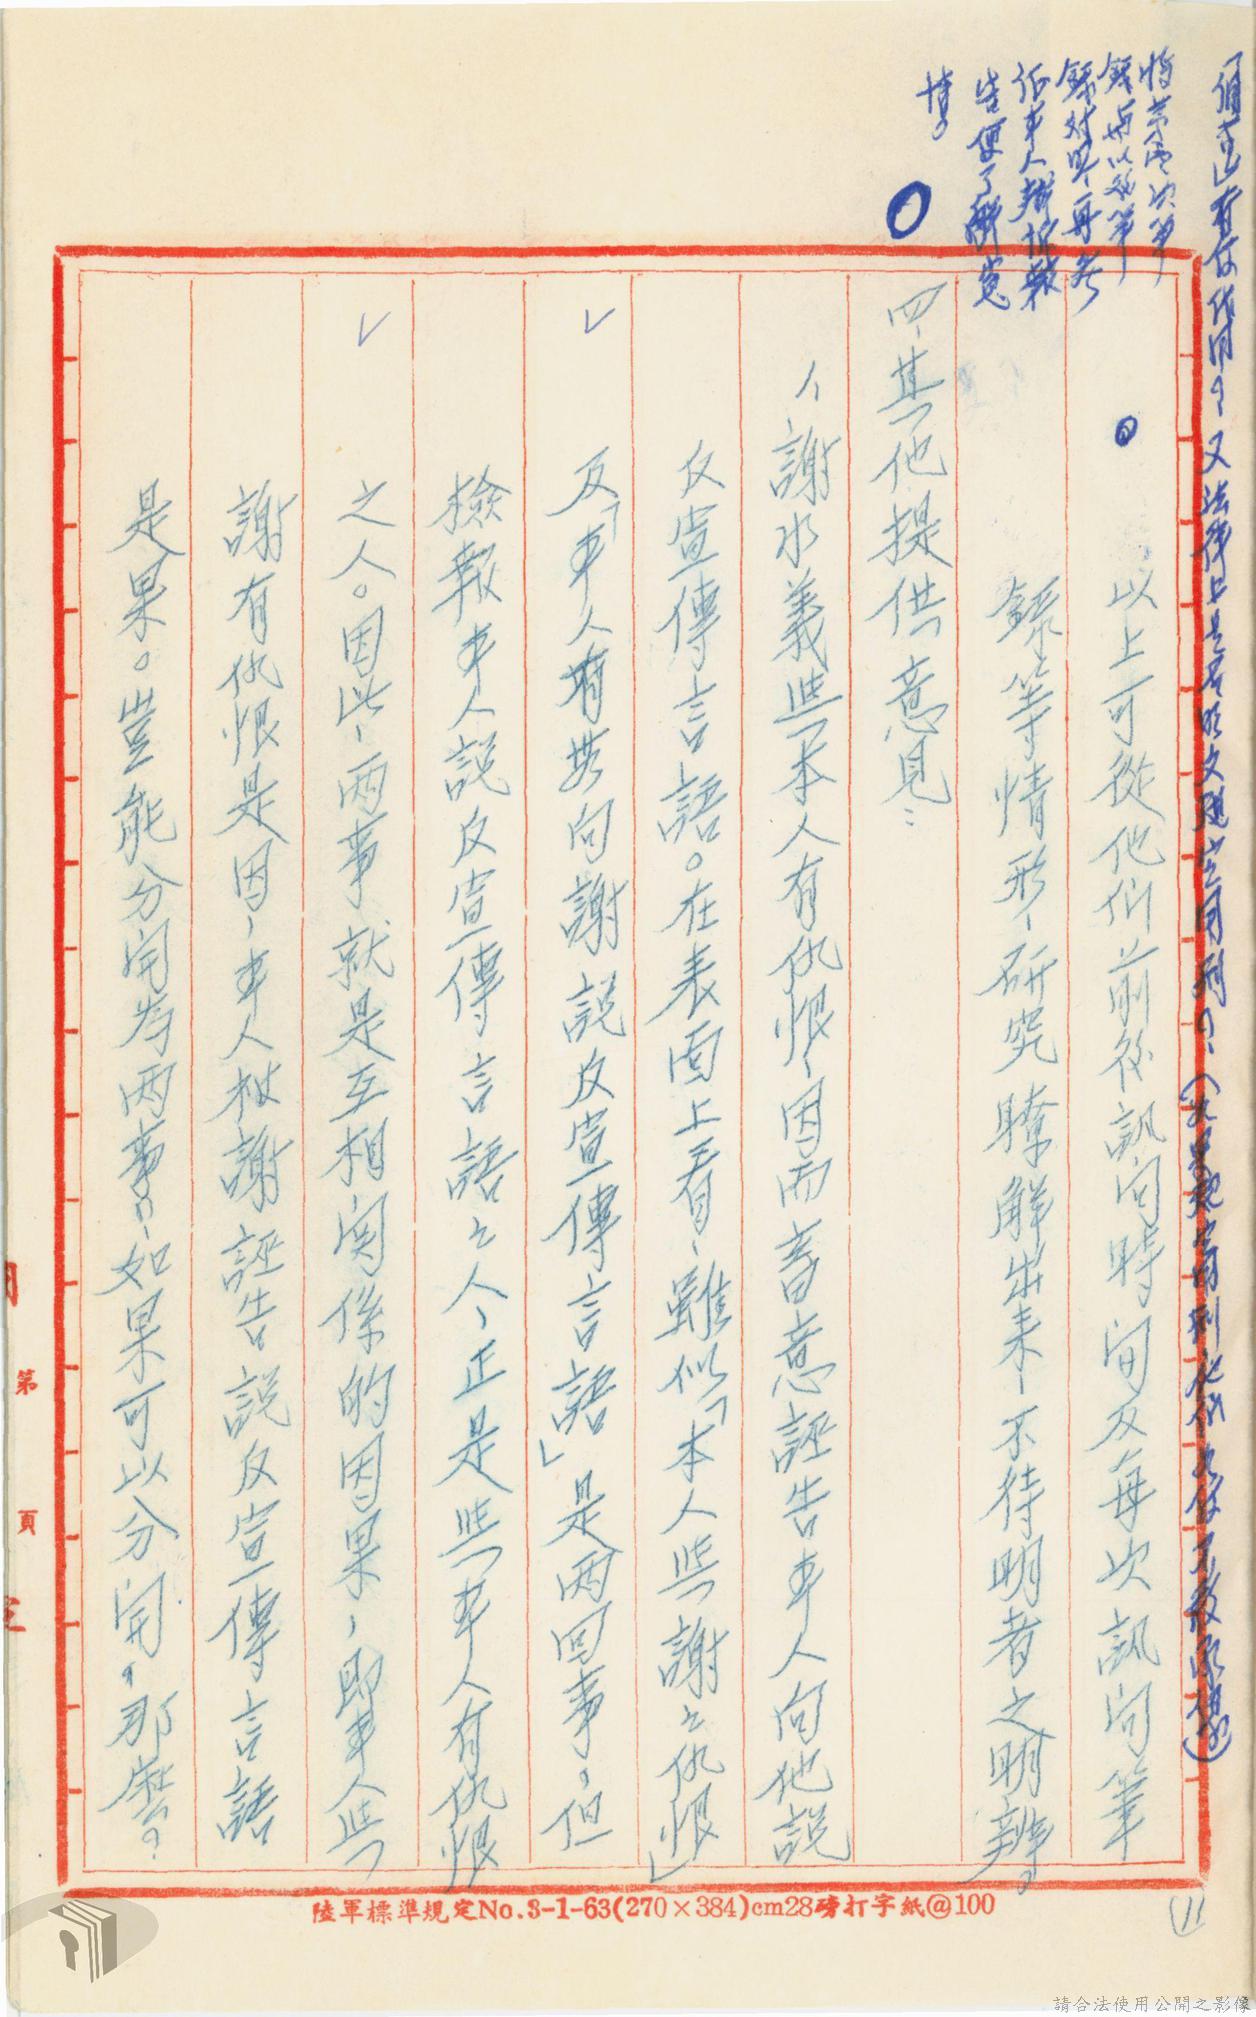 有何作用？又法律上是否明文規定用刑？
將第一次筆
錄與以後筆
錄對照，再參
告便了解寃
情。
以上可從他们前後訊问時间及每次訊问筆
錄等情形，研究瞭解出来，不待明者之明辨。
四、其他提供意見：
1、謝水義與本人有仇恨，因而蓄意誣告本人向他說
反宣傳言語。在表面上看，雖似「本人與謝之仇恨」
及「本人有無向謝說反宣傳言語」是两回事，但
檢報本人說反宣傳言語之人，正是與本人有仇恨
之人。因此，两事就是互相関係的因果，即本人與
謝有仇恨是因，本人被謝誣告說反宣傳言語
是果。豈能分開為两事？如果可以分開，那麽？
陸軍標準規定No.3-1-63(270×384)cm28磅打字紙@100
第
頁
11
請合法使用公開之影像